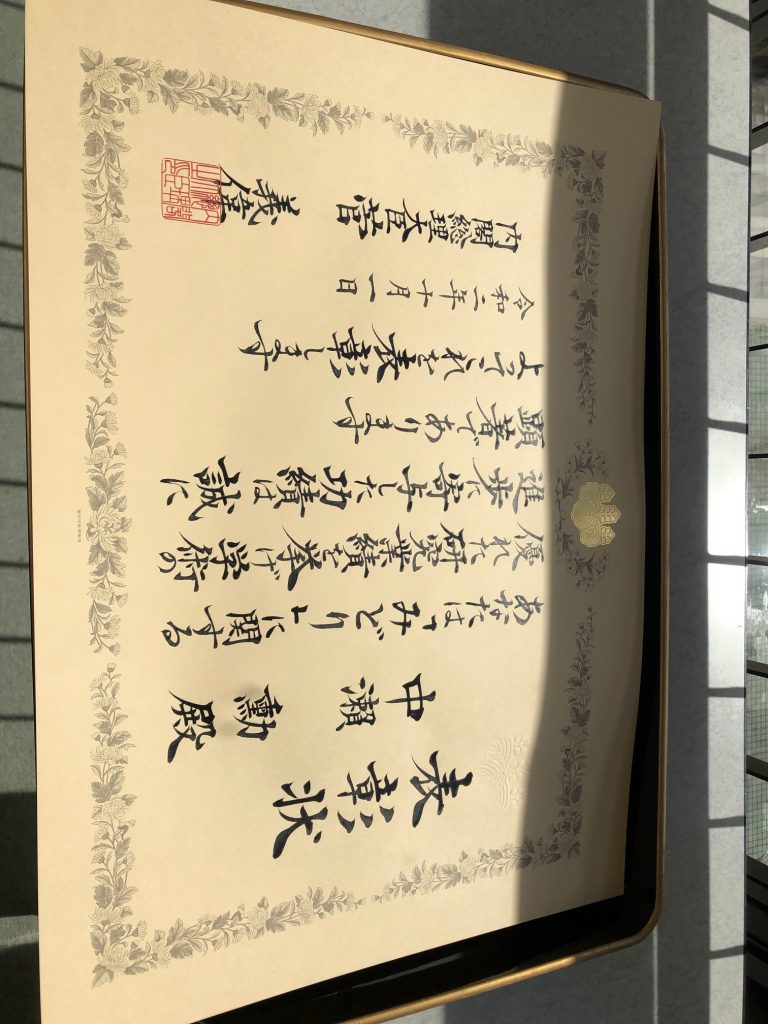 表彰状
中瀬 勳 殿
あなたは「みどり」に関する
優れた研究業績を挙げ学術の
進歩に寄与した功績は誠に
顕著であります
よってこれを表彰します
令和二年十月一日
内閣総理大臣 菅 義偉